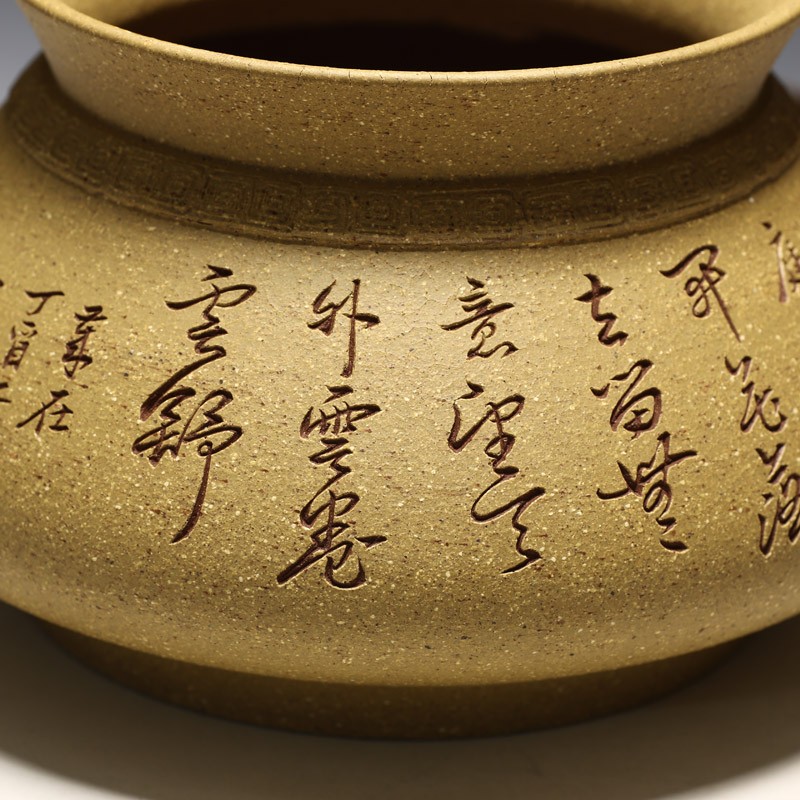 開花落
去留無
意望天
外雲卷
雲舒
丁酉